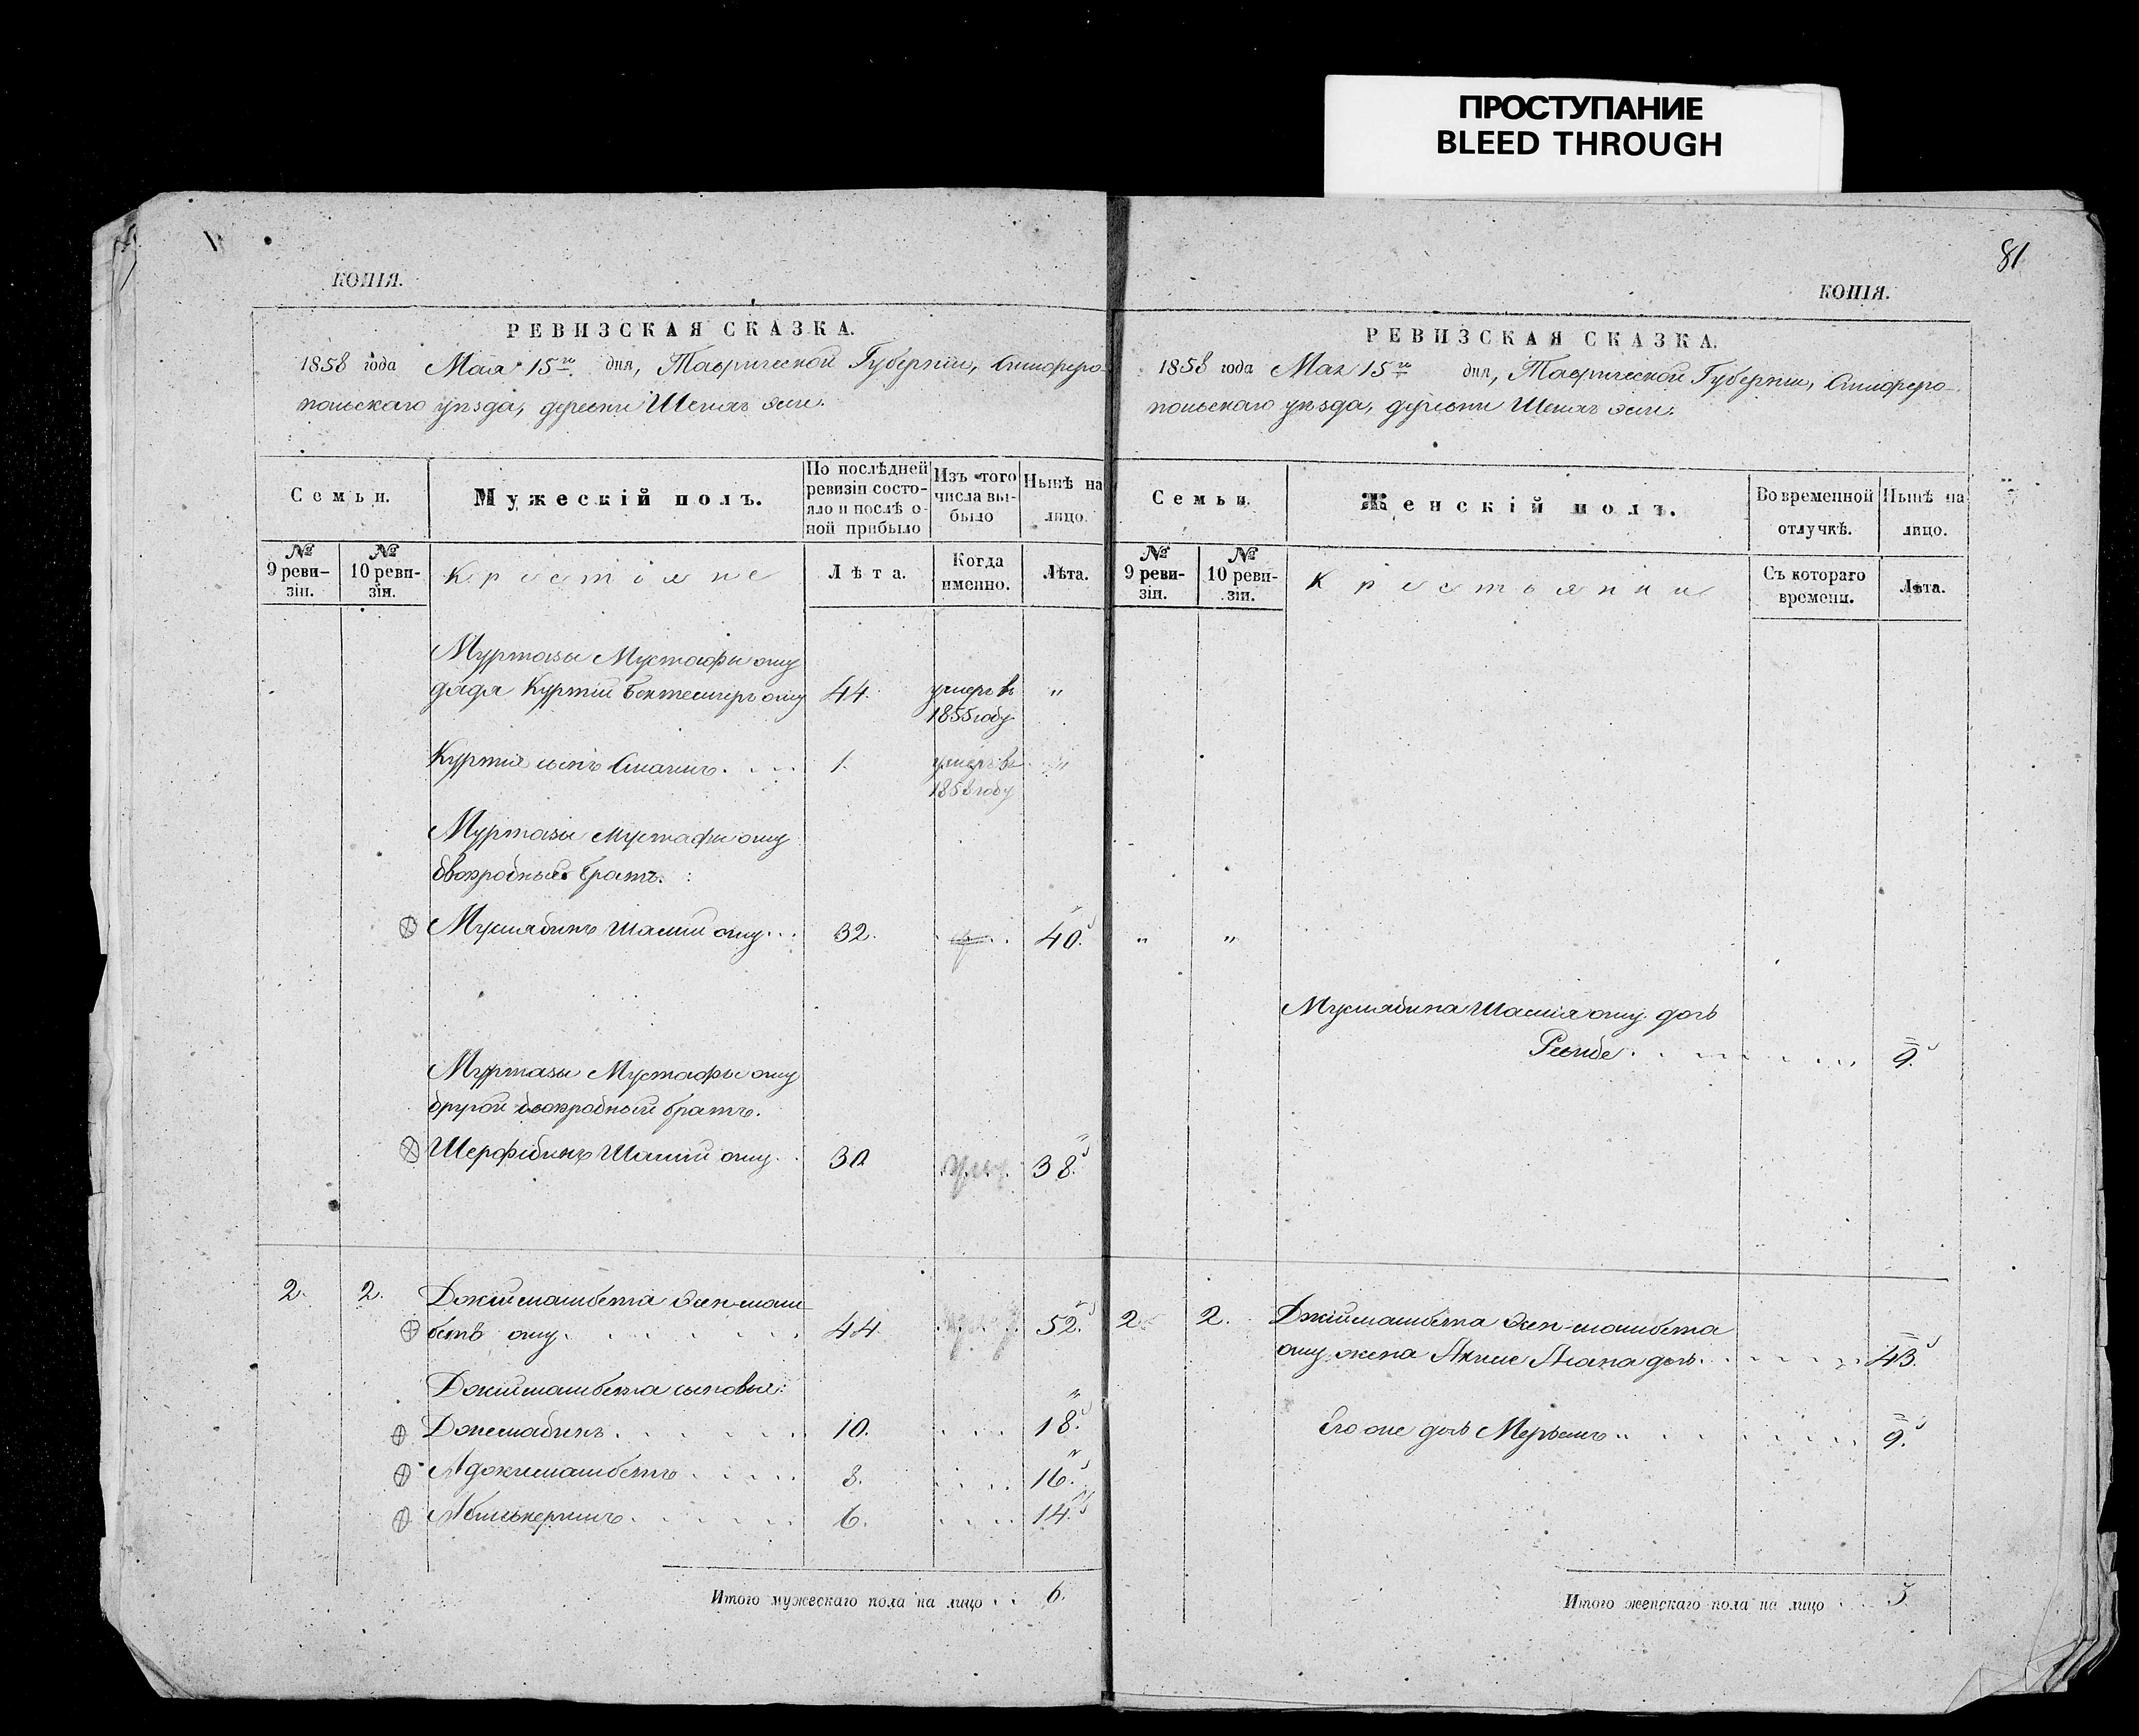 ПРОСТУПАНИЕ
BLEED THROUGH
КОПІЯ.
РЕВИЗСКАЯ СКАЗКА.
1858 года Мая 15го дня, Таврической Губерніи, Симферо-
польскаго уѣзда, деревни
Семьи.
Мужескій полъ.
По послѣдней ревизіи состояло и послѣ оной прибыло
Изъ того числа выбыло
Нынѣ на лицо.
№ 9 ревизіи.
№ 10 ревизіи.
Крестьяне
Лѣта.
Когда именно.
Лѣта.
Муртазы Мустафы оглу
дядя Куртій оглу 44. умеръ въ "
1855 году
Куртія сынъ 1. умеръ въ "
1858 году
Муртазы Мустафы оглу
двоюродный братъ:
оглу... 32. 40.
Муртазы Мустафы оглу
другой двоюродный братъ.
оглу. 30 38.
2. 2. Джіймамбета
бетъ оглу. 44. 52.
Джіймамбета сыновья:
Джемадинъ 10. 18.
Аджимамбетъ 8. 16.
6. 14.
Итого мужескаго пола на лицо 6.
81
КОПІЯ.
РЕВИЗСКАЯ СКАЗКА.
1858 года Мая 15го дня, Таврической Губерніи, Симферо-
польскаго уѣзда, деревни
Семьи.
Женскій полъ.
Во временной отлучкѣ.
Нынѣ на лицо.
№ 9 ревизіи.
№ 10 ревизіи.
Крестьянки
Съ котораго времени.
Лѣта.
" "
оглу дочь
9.
2. 2. Джіймамбета
оглу жена дочь 43.
Его же дочь Мерьемъ 9.
Итого женскаго пола на лицо 3.